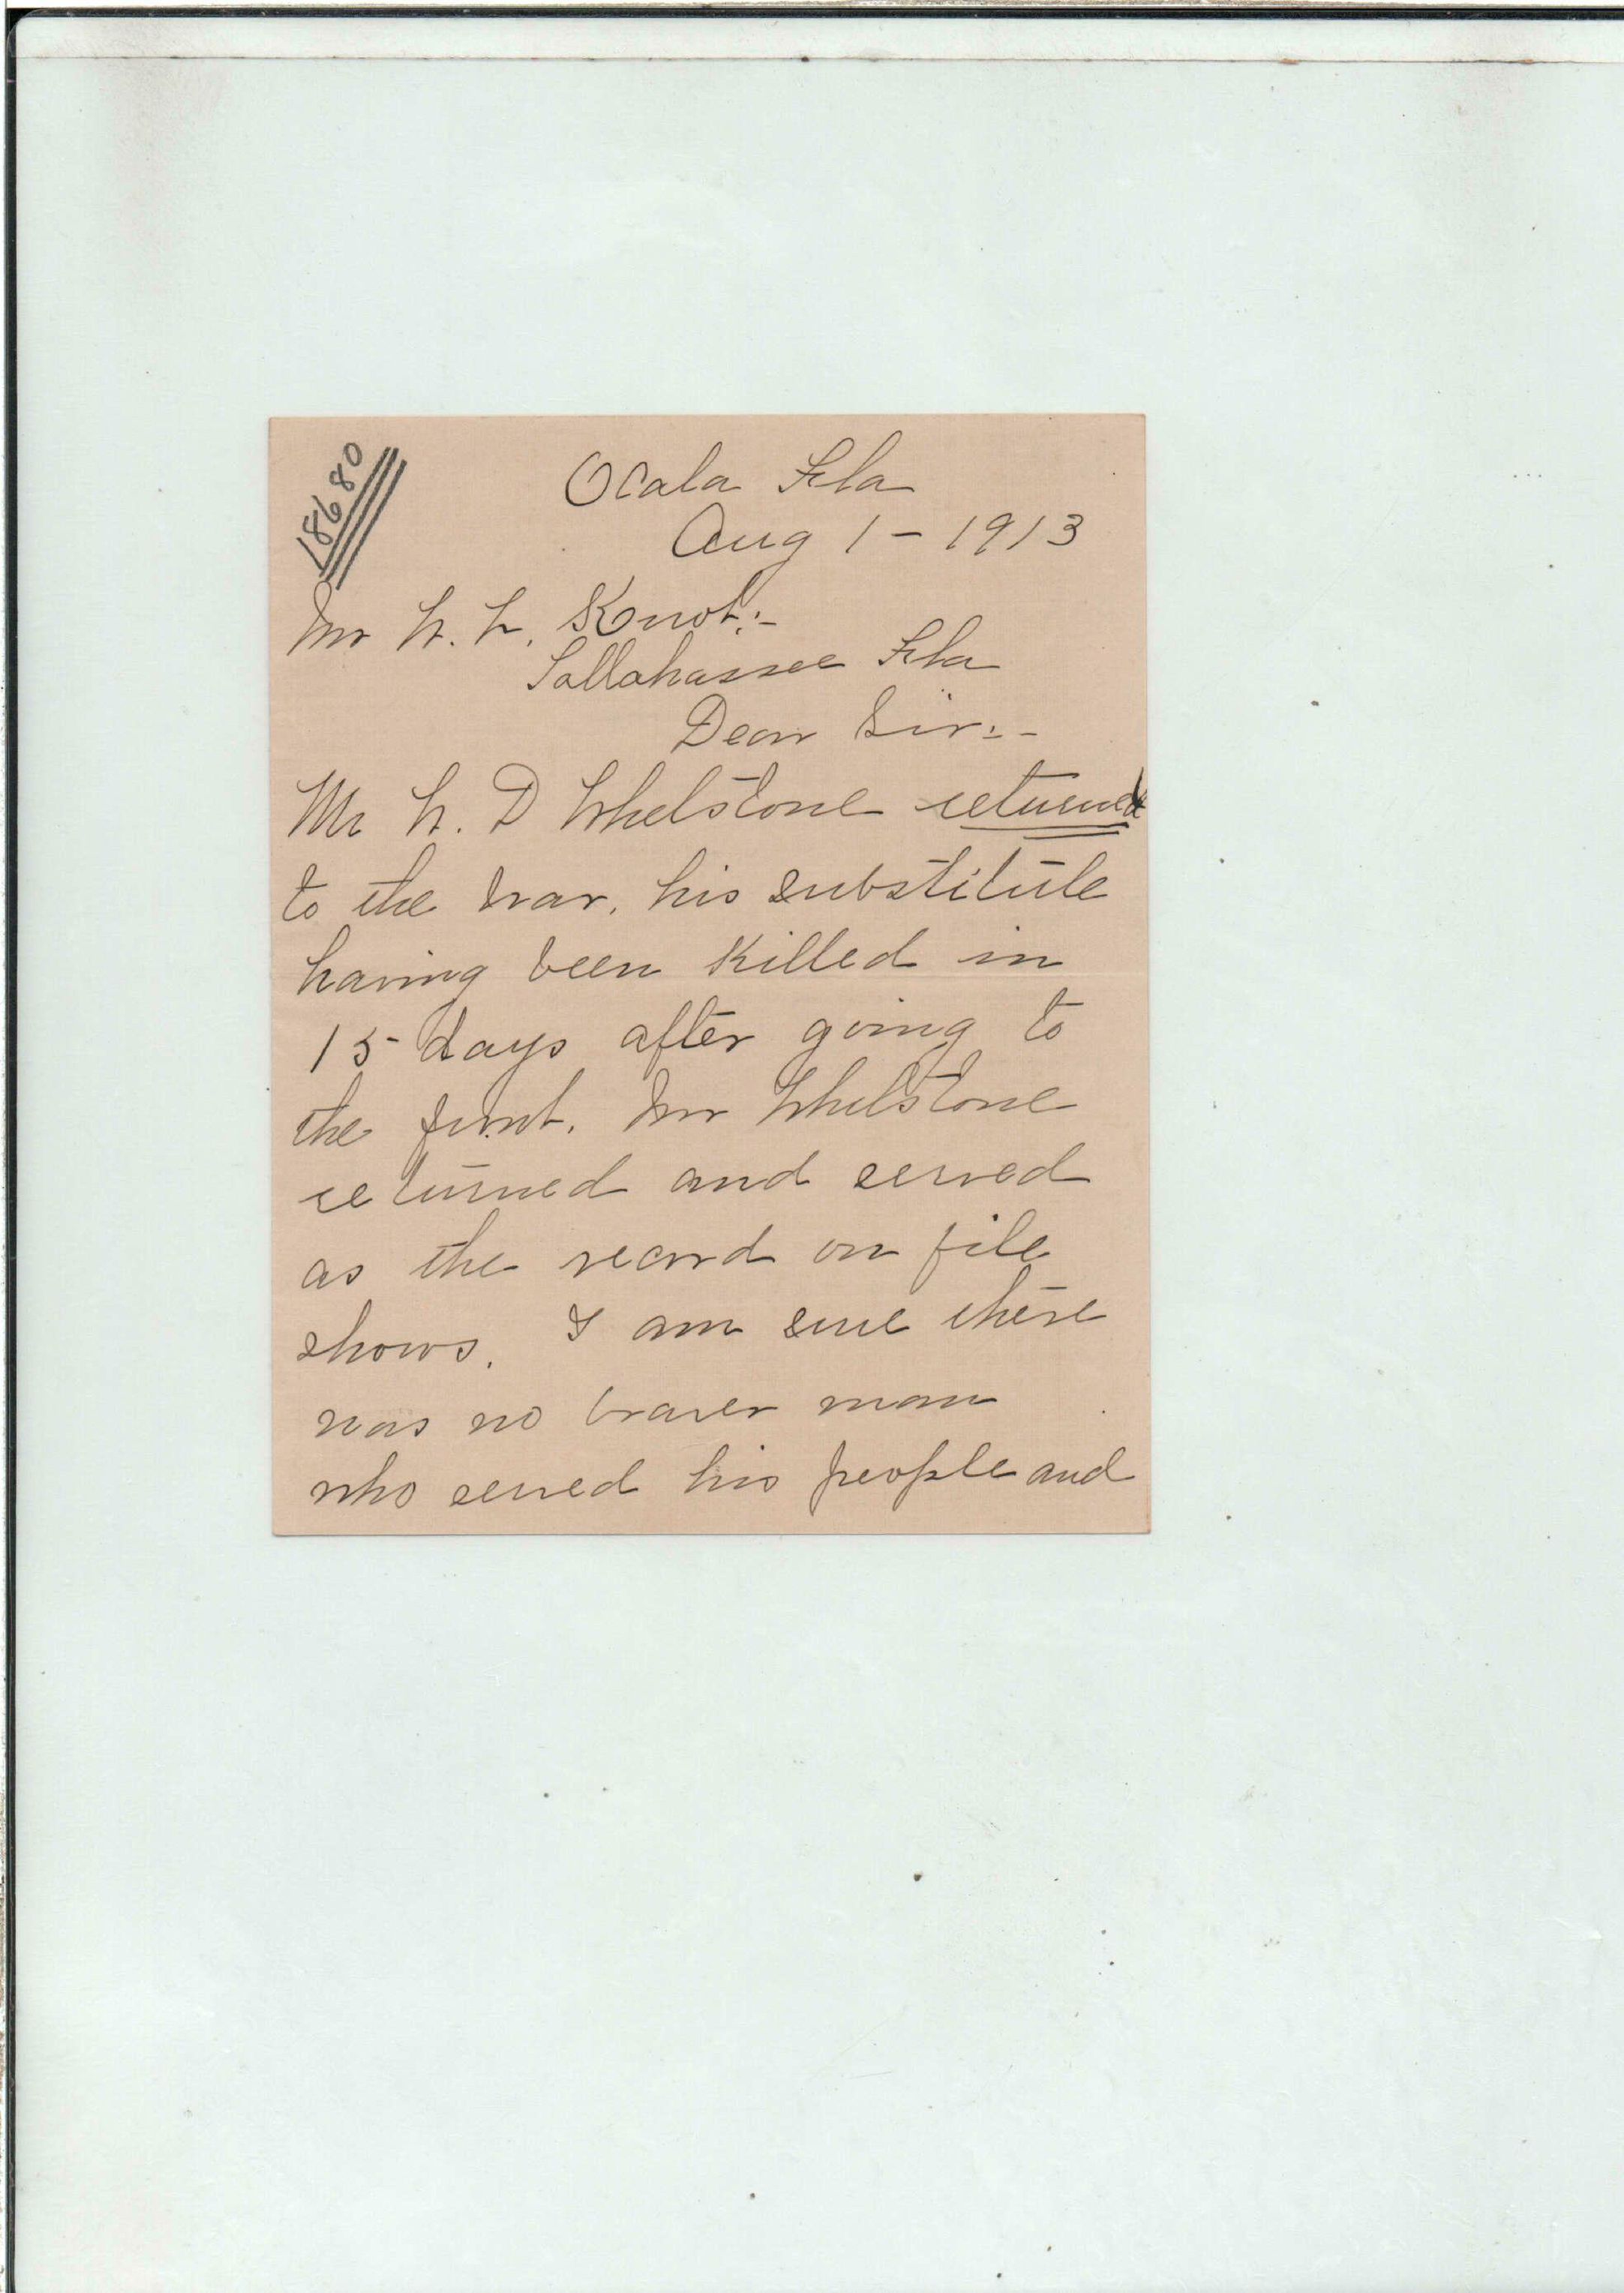 18680
Ocala Fla
Aug 1 - 1913
Mr W. V. Knot:-
Tallahassee Fla
Dear Sir:-
Mr W. D Whetstone returned
to the war, his substitute
having been killed in
15 days after going to
the front. Mr Whetstone
returned and served
as the record on file
shows. I am sure there
was no braver man
who served his people and